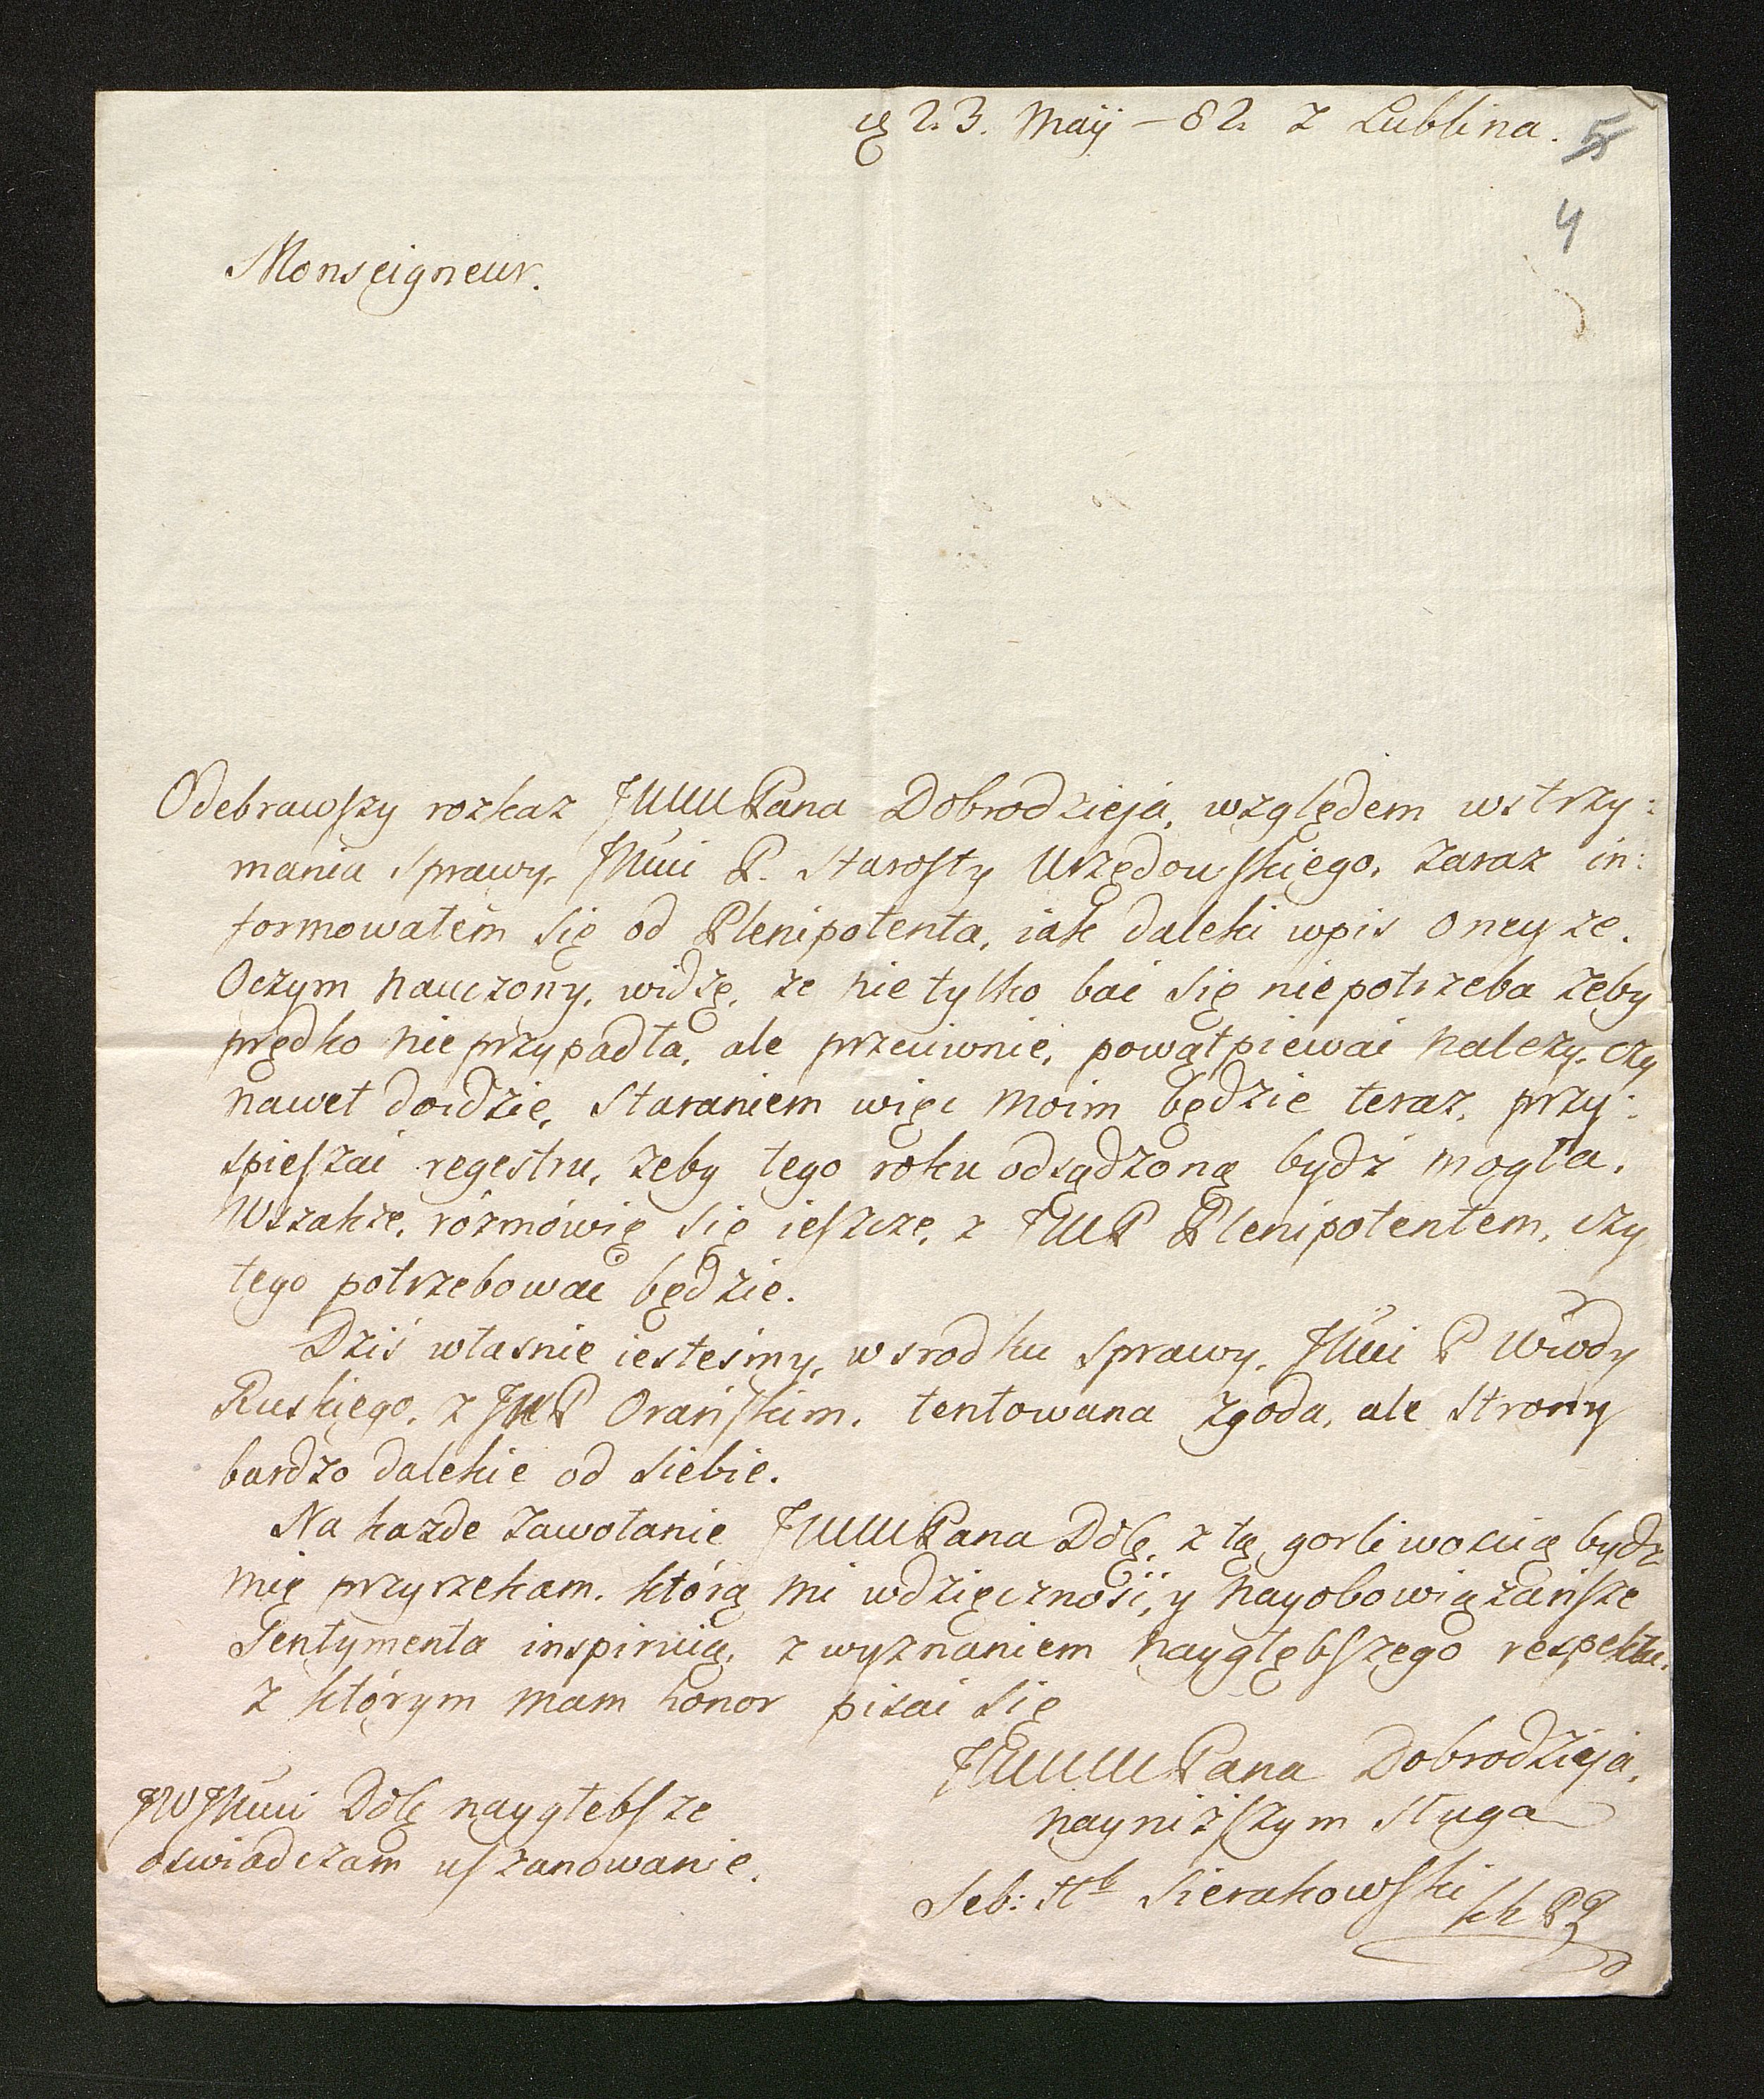 23. Maÿ – 82. z Lublina. 5
4
Monseigneur.
Odebrawszy rozkaz JWWWPana Dobrodzieja, względem wstrzy:
mania sprawy, JMci P. Starosty Urzędowskiego, zaraz in:
formowałem się od Plenipotenta, iak daleki wpis oneyże.
Oczym nauczony, widzę, że nie tylko bać się niepotrzeba żeby
prędko nieprzypadła, ale przeciwnie, powątpiewać należy, czy
nawet doidzie, staraniem więc moim będzie teraz, przy:
spieszać regestru, żeby tego roku odsądzoną bydź mogła.
Wszakże, rozmówię się ieszcze, z JWP Plenipotentem, czy
tego potrzebować będzie.
Dziś własnie iestesmy, wsrodku sprawy, JMci P Wwody
Ruskiego, z JWP Orańskim, tentowana zgoda, ale strony
bardzo dalekie od siebie.
Na każde zawołanie JWWWPana Dobę, z tą gorliwoscią bydz
mię przyrzekam, którą mi wdzięczność, y nayobowiązańsze
Sentymenta inspiruią, z wyznaniem naygłębszego respektu,
z którym mam honor pisać się
JWWWWPana Dobrodzieja,
nayniższym sługa
JWJMci Dobę naygłebsze
oswiadczam uszanowanie.
Seb: Hb Sierakowski